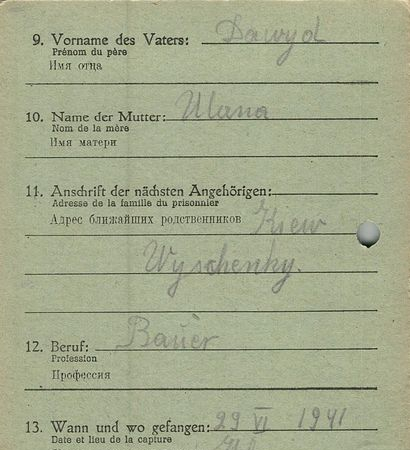 9. Vorname des Vaters: Dawyd
Prénom du père
Имя отца
10. Name der Mutter: Ulana
Nom de la mère
Имя матери
11. Anschrift der nächsten Angehörigen:
Adresse de la famille du prisonnier
Адрес ближайших родственников Kiew
Wyschenky.
12. Beruf: Bauer
Profession
Профессия
13. Wann und wo gefangen: 29 VI 1941
Date et lieu de la capture